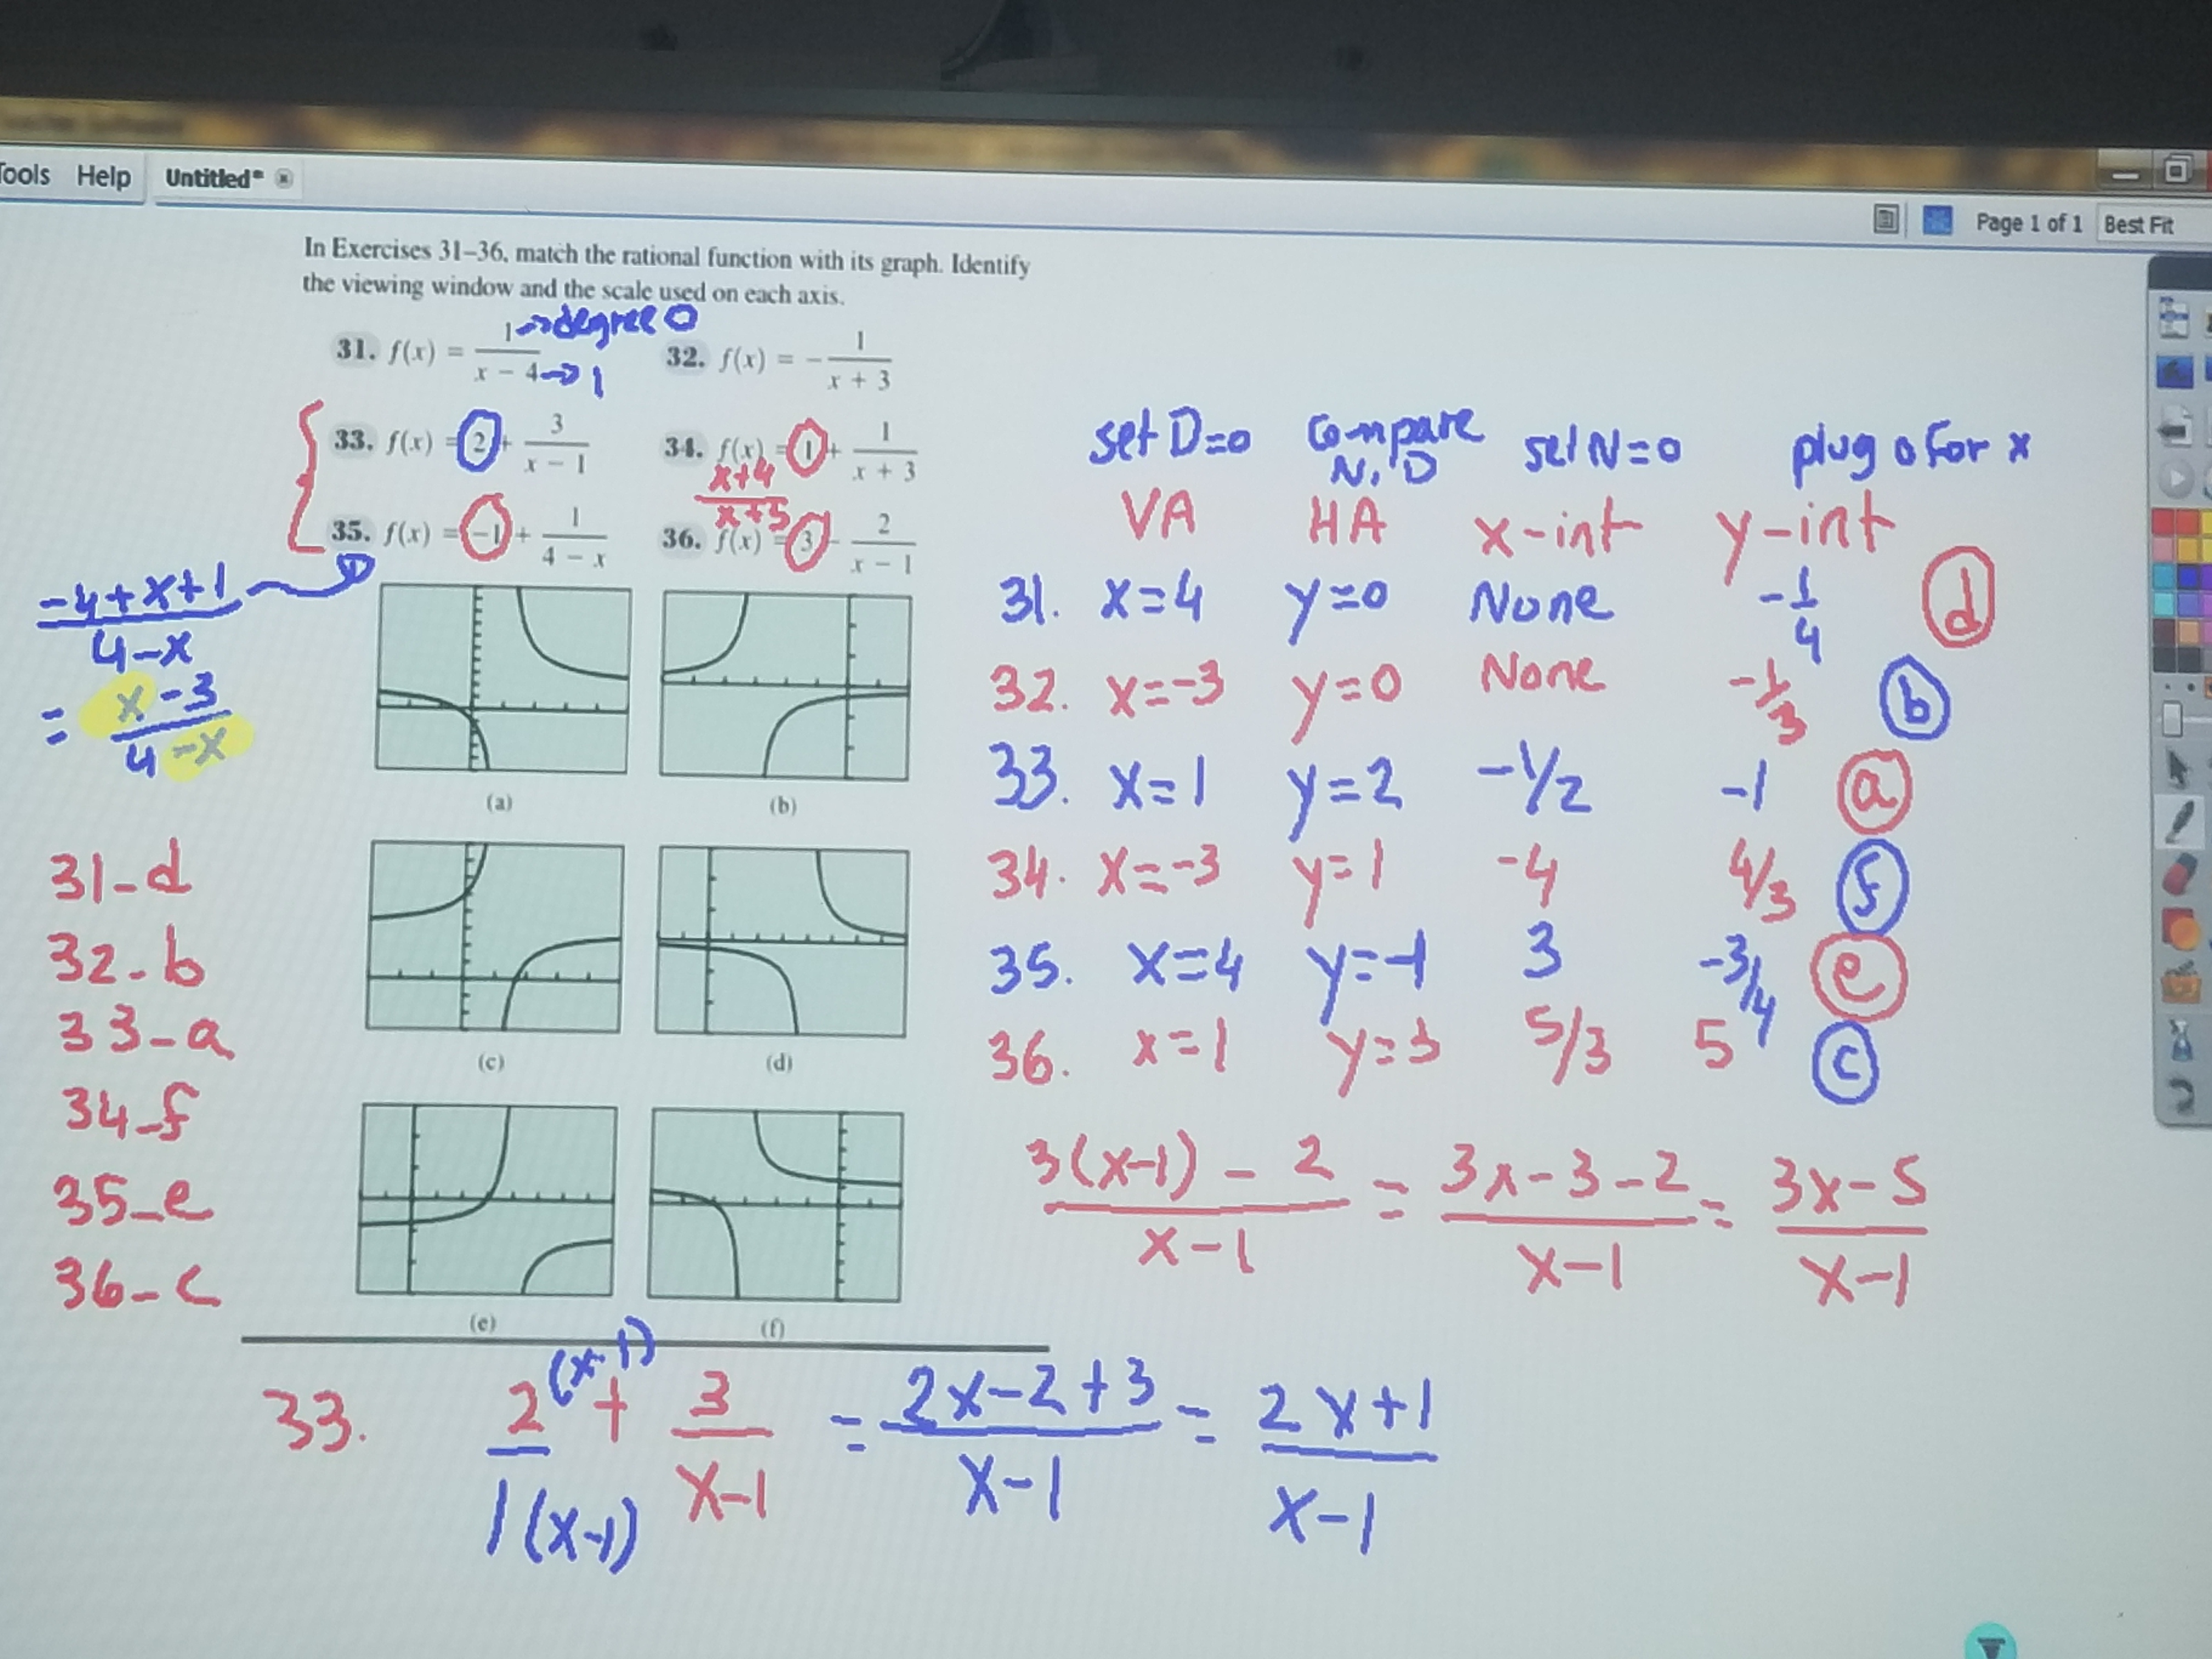 Tools Help Untitled*
Page 1 of 1 Best Fit
In Exercises 31–36, match the rational function with its graph. Identify
the viewing window and the scale used on each axis.
31. f(x) = 1/(x − 4) → degree 0 → 1
32. f(x) = −1/(x + 3)
33. f(x) = 2 + 3/(x − 1)
34. f(x) = 1 + 1/(x + 3)
x+4/x+3
35. f(x) = −1 + 1/(4 − x)
36. f(x) = 3 − 2/(x − 1)
-4+x+1/4-x
= x-3/4-x
(a) (b)
(c) (d)
(e) (f)
31-d
32-b
33-a
34-f
35-e
36-c
set D=0 Compare N, D set N=0 plug 0 for x
VA HA x-int y-int
31. x=4 y=0 None -1/4 d
32. x=-3 y=0 None -1/3 b
33. x=1 y=2 -1/2 -1 a
34. x=-3 y=1 -4 4/3 f
35. x=4 y=-1 3 -3/4 e
36. x=1 y=3 5/3 5 c
3(x-1) - 2/x-1 = 3x-3-2/x-1 = 3x-5/x-1
33. 2(x-1)/1(x-1) + 3/x-1 = 2x-2+3/x-1 = 2x+1/x-1